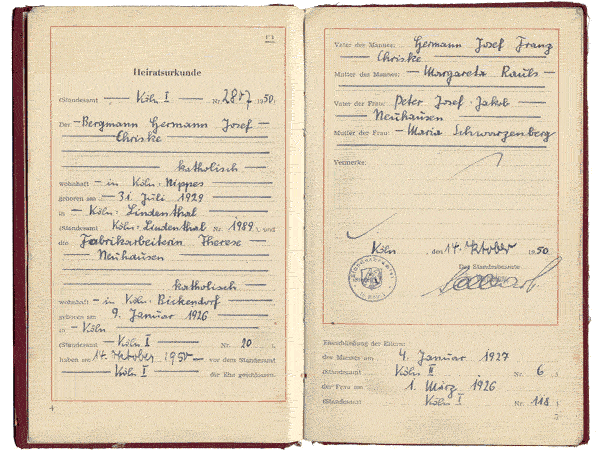 Heiratsurkunde
(Standesamt Köln I Nr. 2857 1950)
Der Bergmann Hermann Josef
Chriske
katholisch
wohnhaft in Köln-Nippes
geboren am 31. Juli 1929
in Köln-Lindenthal
(Standesamt Köln-Lindenthal Nr. 1989), und
die Fabrikarbeiterin Therese
Neuhausen
katholisch
wohnhaft in Köln-Bickendorf
geboren am 9. Januar 1926
in Köln
(Standesamt Köln I Nr. 20),
haben am 14. Oktober 1950 vor dem Standesamt
Köln I die Ehe geschlossen.
4
Vater des Mannes: Hermann Josef Franz
Chriske
Mutter des Mannes: Margareta Rauls
Vater der Frau: Peter Josef Jakob
Neuhausen
Mutter der Frau: Maria Schwarzenberg
Vermerke:
Köln, den 14. Oktober 1950
Der Standesbeamte
Eheschließung der Eltern:
des Mannes am 4. Januar 1927
(Standesamt Köln II Nr. 6)
der Frau am 1. März 1926
(Standesamt Köln I Nr. 118)